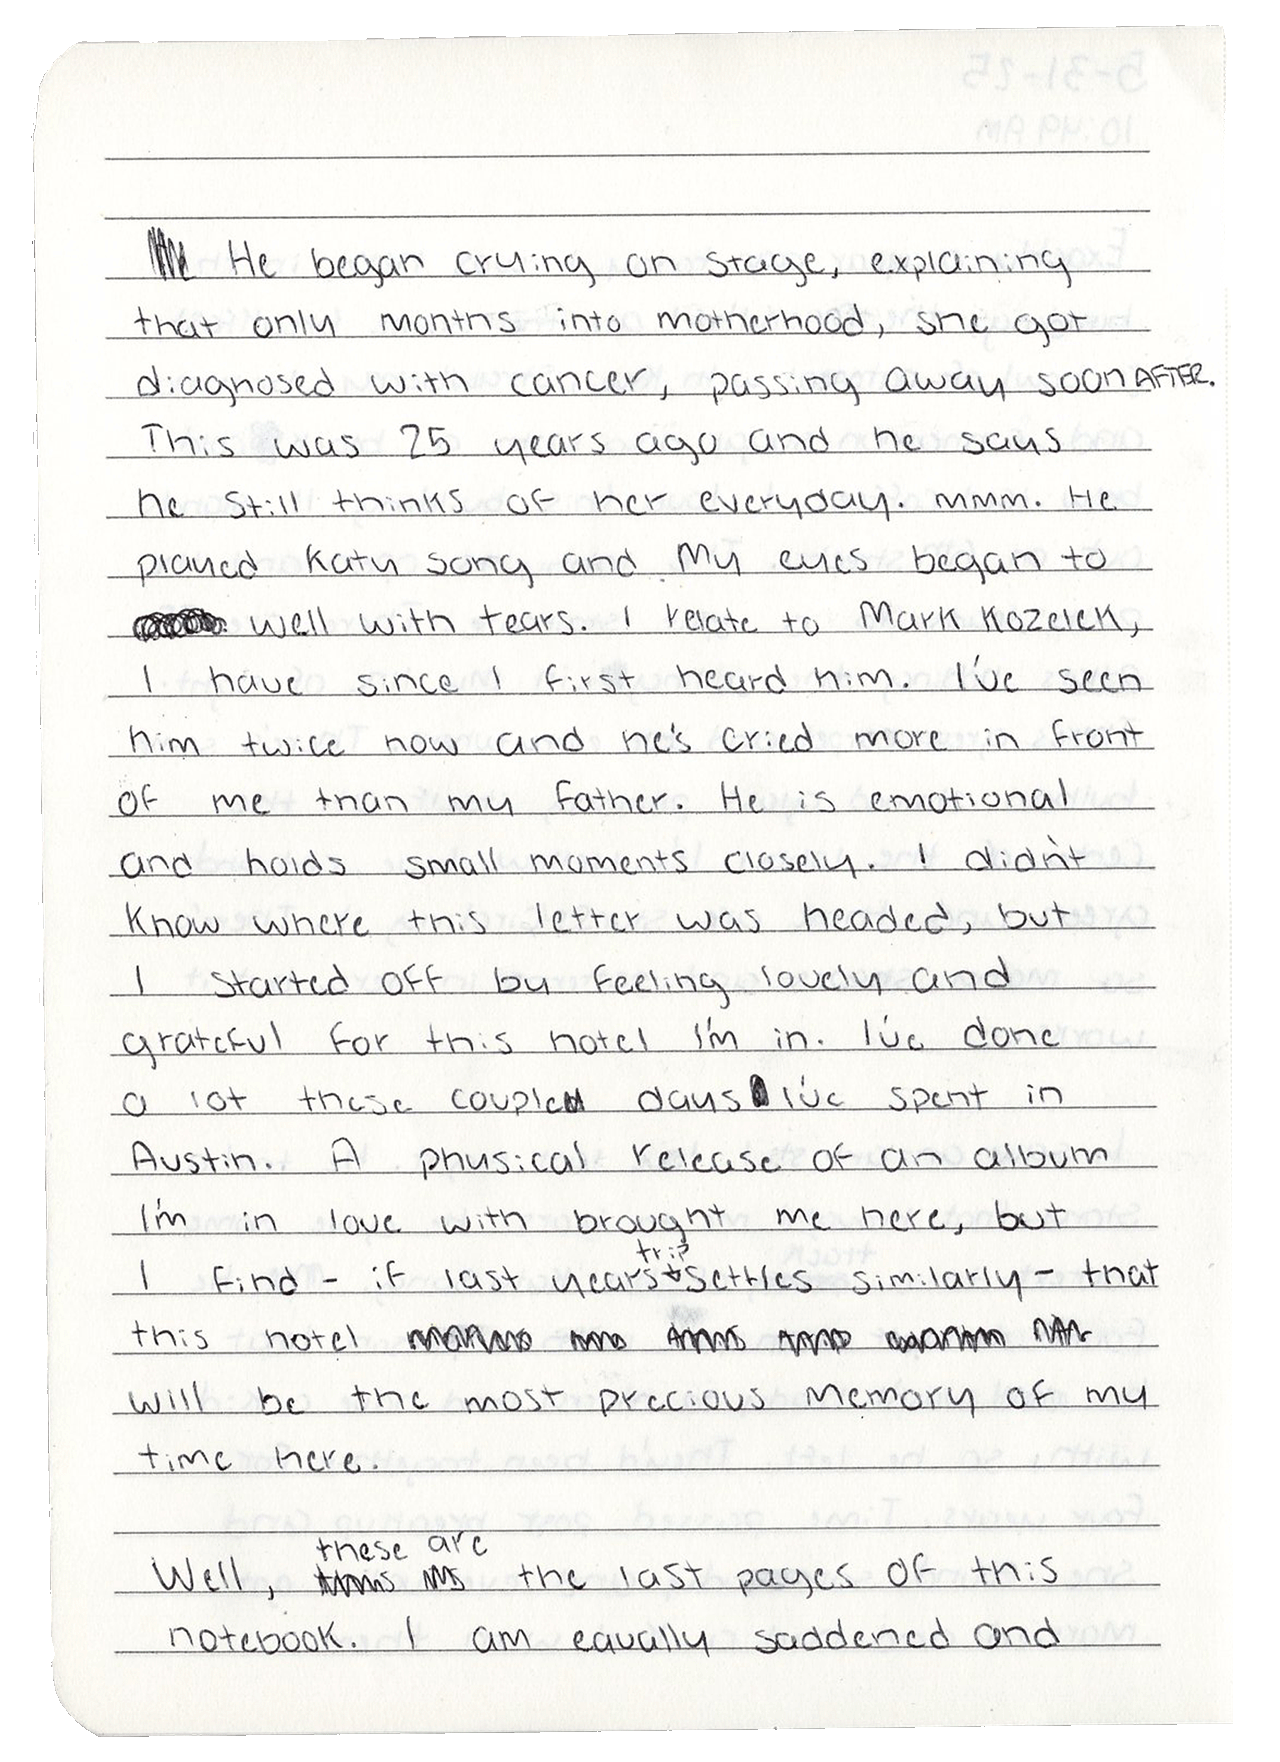 He began crying on stage, explaining
that only months into motherhood, she got
diagnosed with cancer, passing away soon AFTER.
This was 25 years ago and he says
he still thinks of her everyday. mmm. He
played Katy song and My eyes began to
well with tears. I relate to Mark Kozelek,
I have since I first heard him. I've seen
him twice now and he's cried more in front
of me than my father. He is emotional
and holds small moments closely. I didn't
know where this letter was headed, but
I started off by feeling lovely and
grateful for this hotel I'm in. I've done
a lot these couple days I've spent in
Austin. A physical release of an album
I'm in love with brought me here, but
I find - if last years trip settles similarly - that
this hotel
will be the most precious memory of my
time here.
Well, these are the last pages of this
notebook. I am equally saddened and